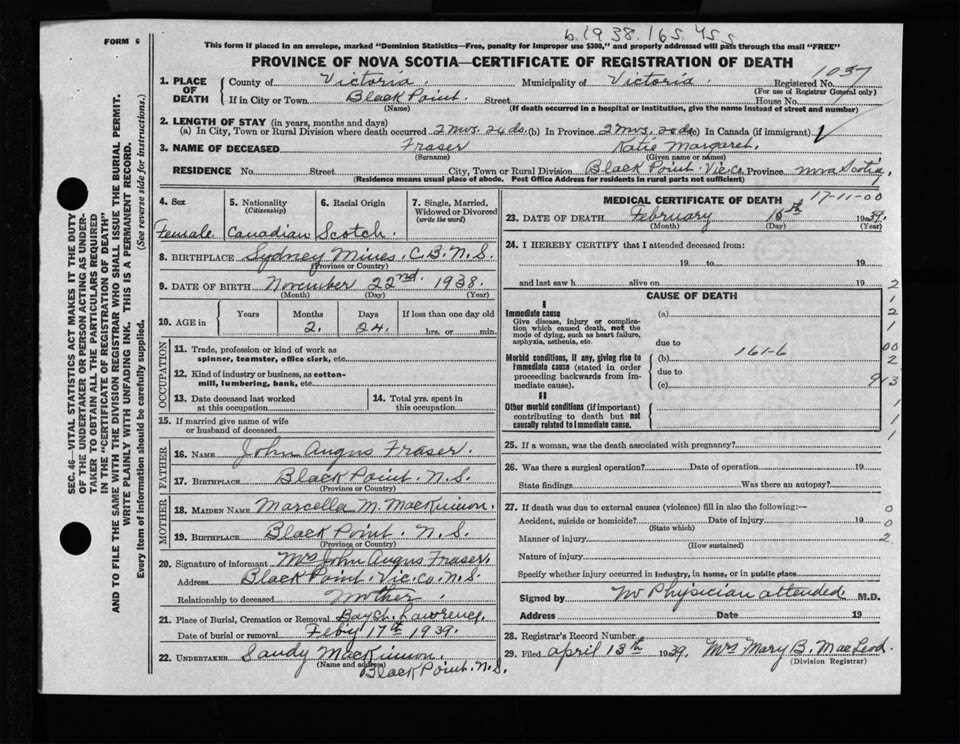 b.1938.165.455
FORM 6
This form if placed in an envelope, marked "Dominion Statistics—Free, penalty for improper use $300," and properly addressed will pass through the mail "FREE"
PROVINCE OF NOVA SCOTIA—CERTIFICATE OF REGISTRATION OF DEATH
SEC. 46—VITAL STATISTICS ACT MAKES IT THE DUTY
OF THE UNDERTAKER OR PERSON ACTING AS UNDER-
TAKER TO OBTAIN ALL THE PARTICULARS REQUIRED
IN THE "CERTIFICATE OF REGISTRATION OF DEATH"
AND TO FILE THE SAME WITH THE DIVISION REGISTRAR WHO SHALL ISSUE THE BURIAL PERMIT.
WRITE PLAINLY WITH UNFADING INK. THIS IS A PERMANENT RECORD.
Every item of information should be carefully supplied. (See reverse side for instructions.)
1. PLACE OF DEATH
County of Victoria. Municipality of Victoria. Registered No. 1037
(For use of Registrar General only)
If in City or Town Black Point. Street House No.
(Name) (If death occurred in a hospital or institution, give the name instead of street and number)
2. LENGTH OF STAY (in years, months and days)
(a) In City, Town or Rural Division where death occurred 2 mos. 24 ds. (b) In Province 2 mos. 24 ds (c) In Canada (if immigrant)
3. NAME OF DECEASED Fraser Katie Margaret.
(Surname) (Given name or names)
RESIDENCE No. Street City, Town or Rural Division Black Point. Vic. Co. Province Nova Scotia.
(Residence means usual place of abode. Post Office Address for residents in rural parts not sufficient)
4. Sex 5. Nationality (Citizenship) 6. Racial Origin 7. Single, Married, Widowed or Divorced (write the word)
Female Canadian Scotch.
8. BIRTHPLACE Sydney Mines. C.B. N.S.
(Province or Country)
9. DATE OF BIRTH November 22nd. 1938.
(Month) (Day) (Year)
10. AGE in Years Months Days If less than one day old
2. 24. hrs. or min.
OCCUPATION
11. Trade, profession or kind of work as
spinner, teamster, office clerk, etc.
12. Kind of industry or business, as cotton-
mill, lumbering, bank, etc.
13. Date deceased last worked
at this occupation
14. Total yrs. spent in
this occupation
15. If married give name of wife
or husband of deceased
FATHER
16. NAME John Angus Fraser.
17. BIRTHPLACE Black Point. N.S.
(Province or Country)
MOTHER
18. MAIDEN NAME Marcella M. MacKinnon.
19. BIRTHPLACE Black Point. N.S.
(Province or Country)
20. Signature of informant Mrs John Angus Fraser.
Address Black Point. Vic. Co. N.S.
Relationship to deceased Mother.
21. Place of Burial, Cremation or Removal Bay St. Lawrence,
Date of burial or removal Feb'y 17th 1939.
22. UNDERTAKER Sandy MacKinnon.
(Name and address) Black Point. N.S.
MEDICAL CERTIFICATE OF DEATH 17-11-00
23. DATE OF DEATH February 15th 1939.
(Month) (Day) (Year)
24. I HEREBY CERTIFY that I attended deceased from:
19 to 19
and last saw h alive on 19
CAUSE OF DEATH
I
Immediate cause (a)
Give disease, injury or complica-
tion which caused death, not the
mode of dying, such as heart failure,
asphyxia, asthenia, etc.
due to
Morbid conditions, if any, giving rise to (b) 161-b
immediate cause (stated in order
proceeding backwards from im-
mediate cause).
due to
(c)
II
Other morbid conditions (if important)
contributing to death but not
causally related to immediate cause.
2
1
2
1
00
2
913
1
1
1
25. If a woman, was the death associated with pregnancy?
26. Was there a surgical operation? Date of operation 19
State findings Was there an autopsy?
27. If death was due to external causes (violence) fill in also the following:—
Accident, suicide or homicide? Date of injury 19
(State which)
Manner of injury
(How sustained)
Nature of injury
Specify whether injury occurred in industry, in home, or in public place
0
0
2
Signed by No Physician attended M.D.
Address Date 19
28. Registrar's Record Number
29. Filed April 13th 1939. Mrs Mary B. MacLeod.
(Division Registrar)